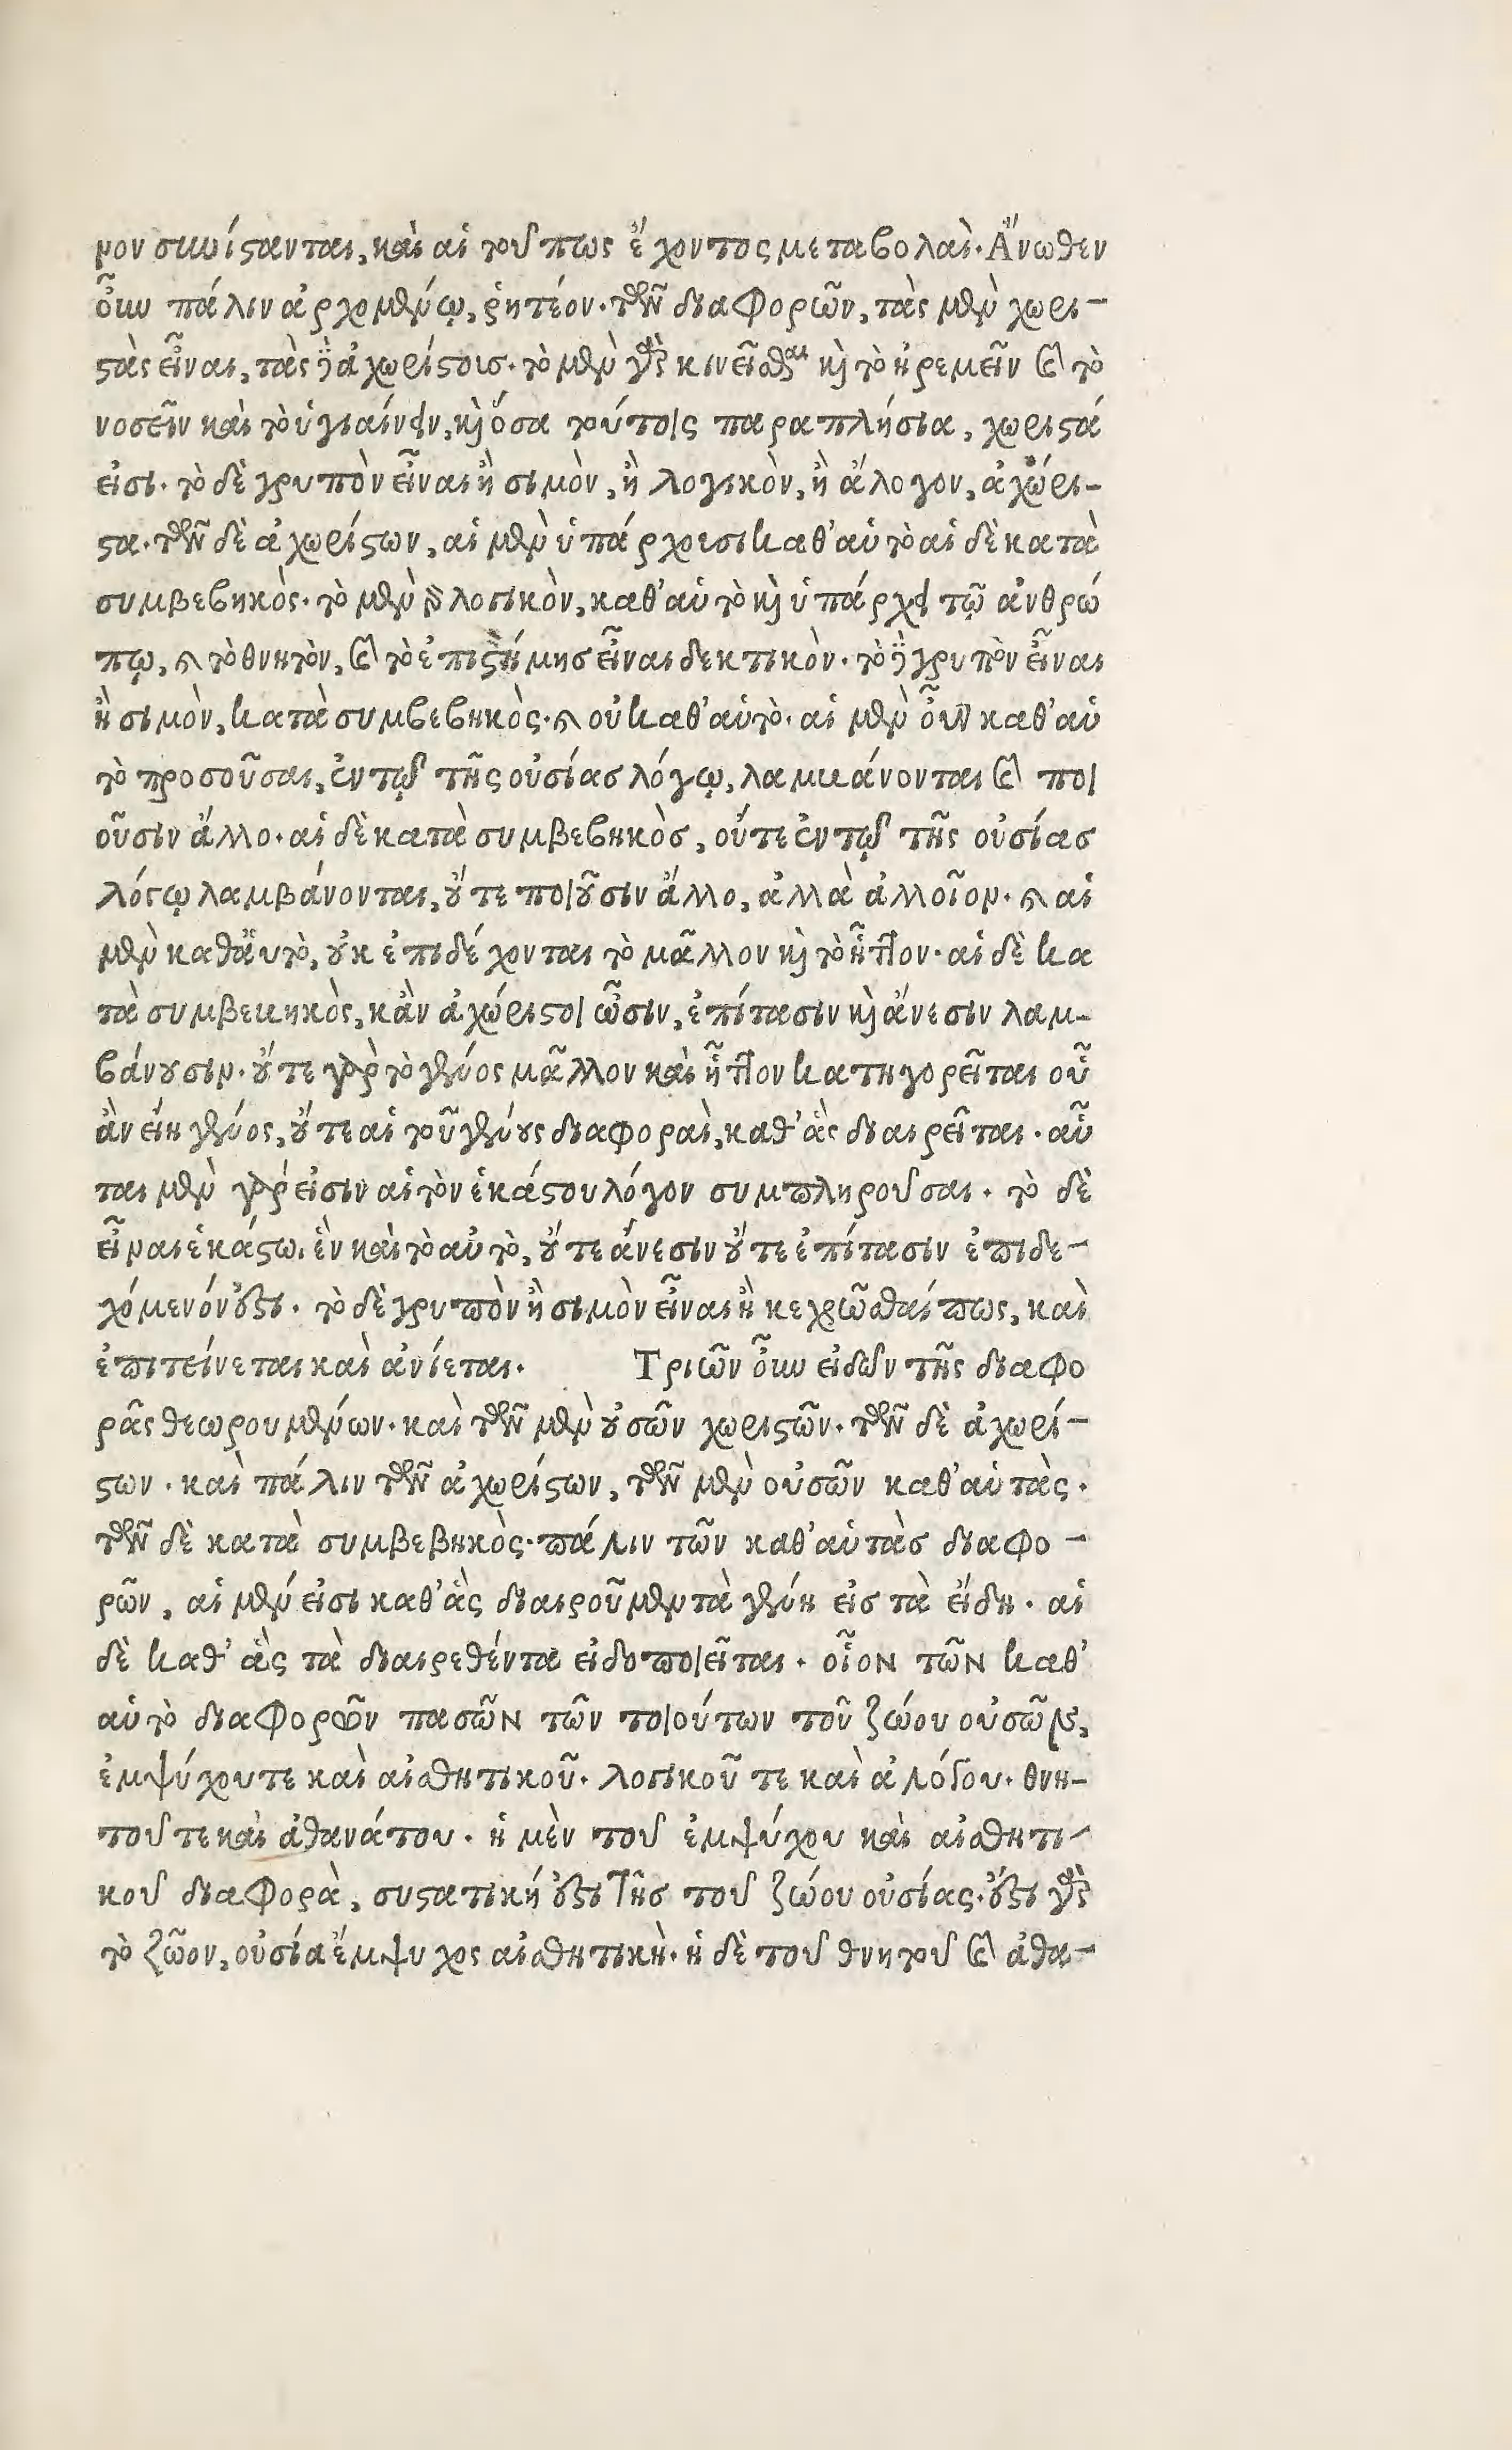 μον συνίσανται, καὶ αἱ τοῦ πως ἔχοντος μεταβολαὶ. Ἄνωθεν
οὖν πάλιν ἀρχομένῳ, ῥητέον. τῶν διαφορῶν, τὰς μὲν χωρι-
στὰς εἶναι, τὰς δὲ ἀχωρίστους. τὸ μὲν γὰρ κινεῖσθαι καὶ τὸ ἠρεμεῖν καὶ τὸ
νοσεῖν καὶ τὸ ὑγιαίνειν, καὶ ὅσα τούτοις παραπλήσια, χωριστά
εἰσι. τὸ δὲ γρυπὸν εἶναι ἢ σιμὸν, ἢ λογικὸν, ἢ ἄλογον, ἀχώρι-
στα. τῶν δὲ ἀχωρίστων, αἱ μὲν ὑπάρχουσι καθ' αὑτὸ αἱ δὲ κατὰ
συμβεβηκὸς. τὸ μὲν γὰρ λογικὸν, καθ' αὑτὸ καὶ ὑπάρχει τῷ ἀνθρώ
πῳ, καὶ τὸ θνητὸν, καὶ τὸ ἐπιστήμησ εἶναι δεκτικὸν. τὸ δὲ γρυπὸν εἶναι
ἢ σιμὸν, κατὰ συμβεβηκὸς. καὶ οὐ καθ' αὑτὸ. αἱ μὲν οὖν καθ' αὑ
τὸ προσοῦσαι, ἐν τῷ τῆς οὐσίασ λόγῳ, λαμβάνονται καὶ ποι
οῦσιν ἄλλο. αἱ δὲ κατὰ συμβεβηκὸσ, οὔτε ἐν τῷ τῆς οὐσίασ
λόγῳ λαμβάνονται, οὔτε ποιοῦσιν ἄλλο, ἀλλὰ ἀλλοῖον. καὶ αἱ
μὲν καθ' αὑτὸ, οὐκ ἐπιδέχονται τὸ μᾶλλον καὶ τὸ ἧττον. αἱ δὲ κα
τὰ συμβεβηκὸς, κἂν ἀχώριστοι ὦσιν, ἐπίτασιν καὶ ἄνεσιν λαμ-
βάνουσιν. οὔτε γὰρ τὸ γένος μᾶλλον καὶ ἧττον κατηγορεῖται οὗ
ἂν εἴη γένος, οὔτε αἱ τοῦ γένους διαφοραὶ, καθ' ἃς διαιρεῖται. αὗ
ται μὲν γάρ εἰσιν αἱ τὸν ἑκάστου λόγον συμπληροῦσαι. τὸ δὲ
εἶναι ἑκάστῳ. ἓν καὶ τὸ αὐτὸ, οὔτε ἄνεσιν οὔτε ἐπίτασιν ἐπιδε-
χόμενόν ἐστι. τὸ δὲ γρυπὸν ἢ σιμὸν εἶναι ἢ κεχρῶσθαί πως, καὶ
ἐπιτείνεται καὶ ἀνίεται. Τριῶν οὖν εἰδῶν τῆς διαφο
ρᾶς θεωρουμένων. καὶ τῶν μὲν οὐσῶν χωριστῶν. τῶν δὲ ἀχωρί-
στων. καὶ πάλιν τῶν ἀχωρίστων, τῶν μὲν οὐσῶν καθ' αὑτὰς.
τῶν δὲ κατὰ συμβεβηκὸς. πάλιν τῶν καθ' αὑτὰσ διαφο-
ρῶν, αἱ μέν εἰσι καθ' ἃς διαιροῦμεν τὰ γένη εἰσ τὰ εἴδη. αἱ
δὲ καθ' ἃς τὰ διαιρεθέντα εἰδοποιεῖται. οἷον τῶν καθ'
αὑτὸ διαφορῶν πασῶν τῶν τοιούτων τοῦ ζώου οὐσῶν,
ἐμψύχου τε καὶ αἰσθητικοῦ. λογικοῦ τε καὶ ἀλόγου. θνη-
τοῦ τε καὶ ἀθανάτου. ἡ μὲν τοῦ ἐμψύχου καὶ αἰσθητι-
κοῦ διαφορὰ, συστατική ἐστι τῆσ τοῦ ζώου οὐσίας. ἔστι γὰρ
τὸ ζῶον, οὐσία ἔμψυχος αἰσθητικὴ. ἡ δὲ τοῦ θνητοῦ καὶ ἀθα-